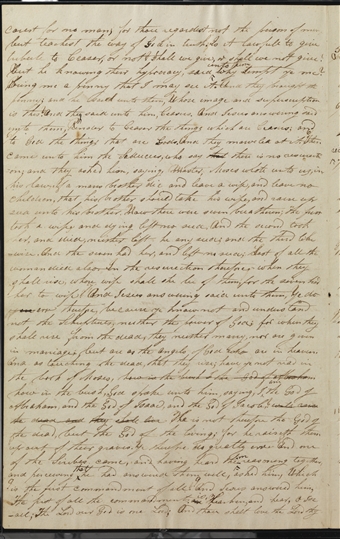 carest for no man; for thou regardest not the person of men
but teachest the way of God in truth, Is it lawful to give
tribute to Ceasar, or not? Shall we give, or shall we not give?
But he knowing their hypocrisy, said unto them, Why tempt ye me?
bring me a penny that I may see it. And they brought the
penny; and he said unto them, Whose image and superscription
is this? And they said unto him, Ceasars. And Jesus answering said
unto them, render to Ceasar the things which are Ceasars; and
to God the things that are Gods; and they marveled at it. Then
came unto him the Saducees, who say there is no resurrection
and they asked him, saying, Master, Moses wrote unto us in
his law, if a mans brother die and leave a wife, and leave no
children, that his brother should take his wife, and raise up
seed unto his brother. Now there were seven brethren, the first
took a wife and dying left no seed. And the second took
her, and died, neither left he any seed; and the third like
wise. And the seven had her, and left no seed; last of all the
woman died also. In the resurrection therefore, when they
shall rise, whose wife shall she be of them, for the seven had
her to wife? And Jesus answering said unto them, Ye do
err therefore, because ye know not and understand
not the Scriptures, neither the power of God; for when they
shall rise from the dead, they neither marry, nor are given
in marriage, but are as the angels of God who are in heaven
and as touching the dead, that they rise; have ye not read in
the book of Moses,
how in the bush, God spake unto him, saying, I am the God of
Abraham, and the God of Isaac, and the God of Jacob;
He is not therefore the God of
the dead, but the God of the living; for he raiseth them
up out of their graves. Ye therefore do greatly err. And one
of the Scribes came, and having heard them reasoning together
and perceiving that he had answered them well, asked him, Which
is the first commandment of all? and Jesus answered him,
The first of all the commandments is; Hearken, and hear, O Is
rael; The Lord our God is one Lord. And thou shalt love the Lord thy